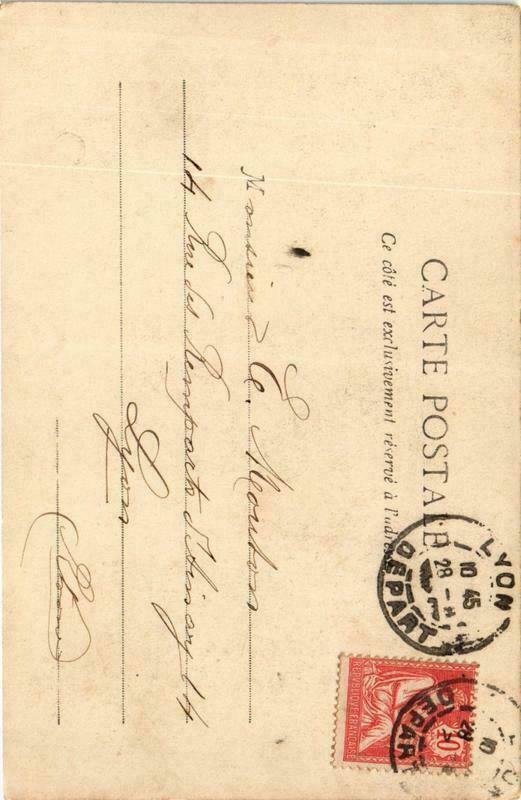 CARTE POSTALE
Ce côté est exclusivement réservé à l'adre
LYON
10 45
28
DEPART
RÉPUBLIQUE FRANÇAISE
10
DEPART
28
Monsieur C. Mouton
14 Rue des Remparts d'Ainay 14
Lyon